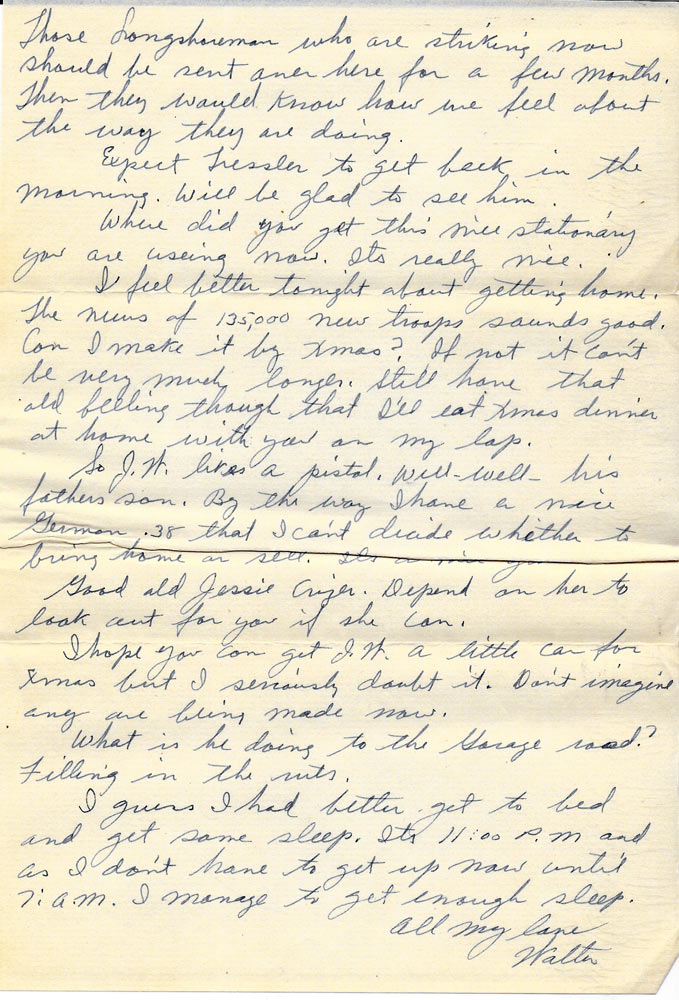 Those Longshoreman who are striking now
should be sent over here for a few months.
Then they would know how we feel about
the way they are doing.
Expect Tressler to get back in the
morning. Will be glad to see him.
Where did you get this nice stationary
you are useing now. Its really nice.
I feel better tonight about getting home.
The news of 135,000 new troops sounds good.
Can I make it by Xmas? If not it can't
be very much longer. Still have that
old feeling though that I'll eat Xmas dinner
at home with you on my lap.
So J.W. likes a pistol. Well-well- his
fathers son. By the way I have a nice
German .38 that I can't decide whether to
bring home or sell. Its a nice
Good old Jessie Crizer. Depend on her to
look out for you if she can.
I hope you can get J.W. a little car for
Xmas but I seriously doubt it. Don't imagine
any are being made now.
What is he doing to the Garage road?
Filling in the ruts.
I guess I had better get to bed
and get some sleep. Its 11:00 P.M and
as I don't have to get up now until
7: A.M. I manage to get enough sleep.
All my love
Walter